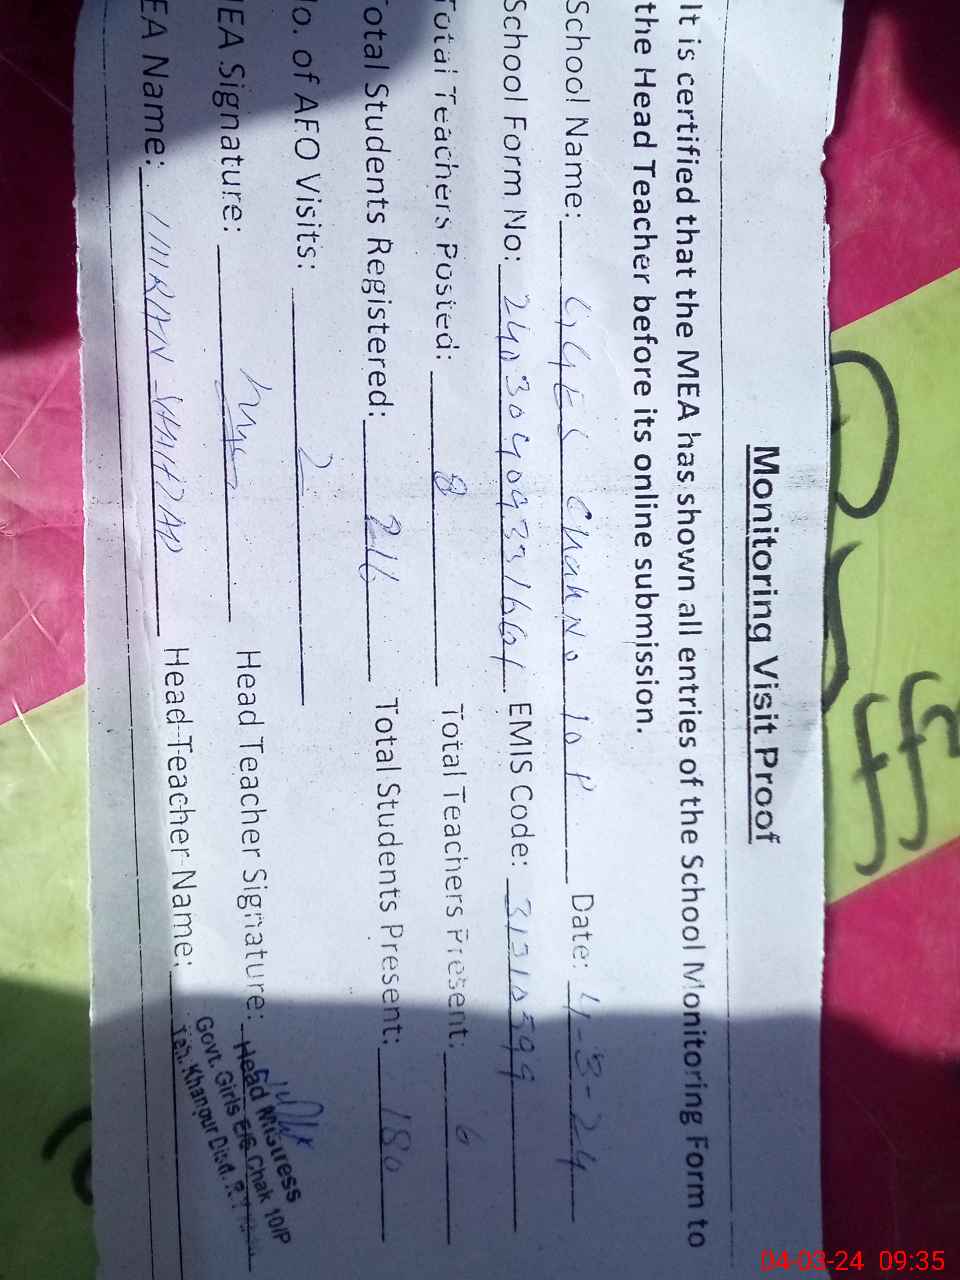 Monitoring Visit Proof
It is certified that the MEA has shown all entries of the School Monitoring Form to
the Head Teacher before its online submission.
School Name: GGES Chak No 10 P Date: 4-3-24
School Form No: EMIS Code: 31310599
Total Teachers Posted: 8 Total Teachers Present: 6
otal Students Registered: 216 Total Students Present: 180
o. of AEO Visits: 2
EA Signature: Head Teacher Signature:
EA Name: SHAHZAD Head Teacher Name:
Head Mistress
Govt. Girls E/S Chak 10/P
Teh. Khanpur Distt. R.Y.
ff
04-03-24 09:35